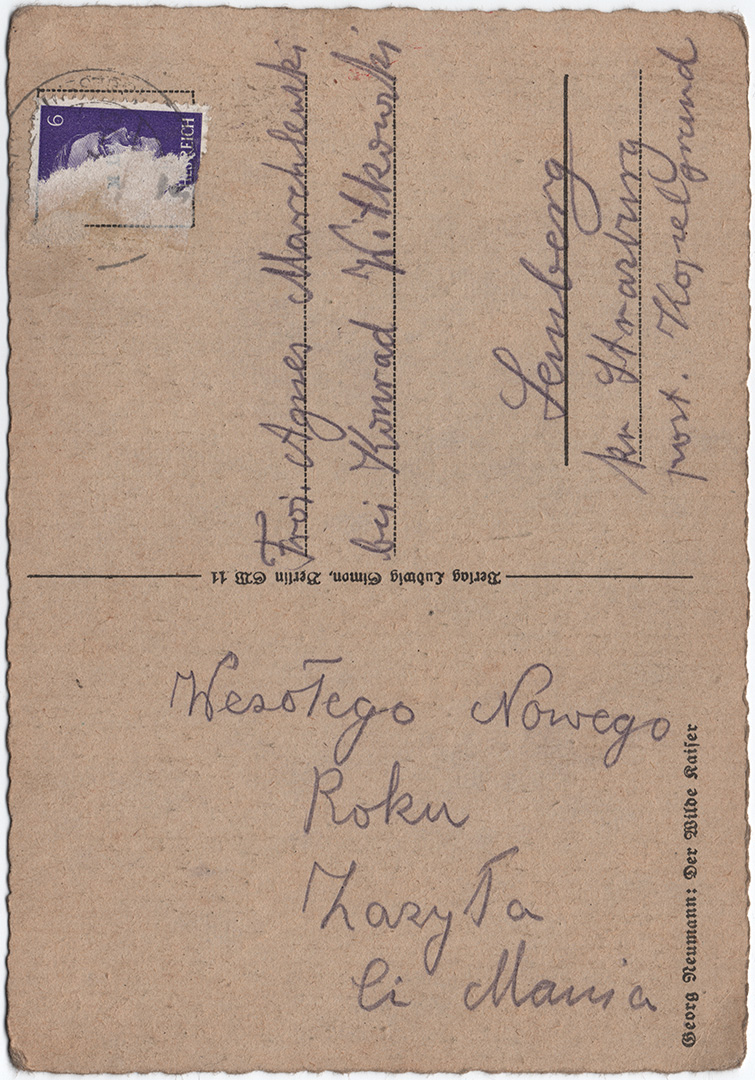 6
HES REICH
Froi. Agnes Marchlewski
bei Konrad Witkowski
Lemberg
kr Strasburg
post. Konselgrund
Verlag Ludwig Simon, Berlin SW 11
Wesołego Nowego
Roku
Zasyła
Ci Mania
Georg Neumann: Der Wilde Kaiser